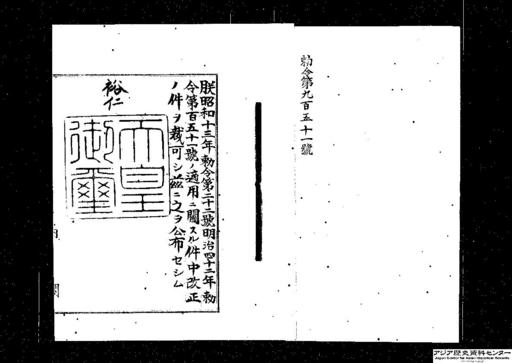 勅令第九百五十一號
朕昭和十三年勅令第二十二號明治四十二年勅
令第百五十一號ノ適用ニ關スル件中改正
ノ件ヲ裁可シ茲ニ之ヲ公布セシム
裕仁
天皇
御璽
アジア歴史資料センター
Japan Center for Asian Historical Records